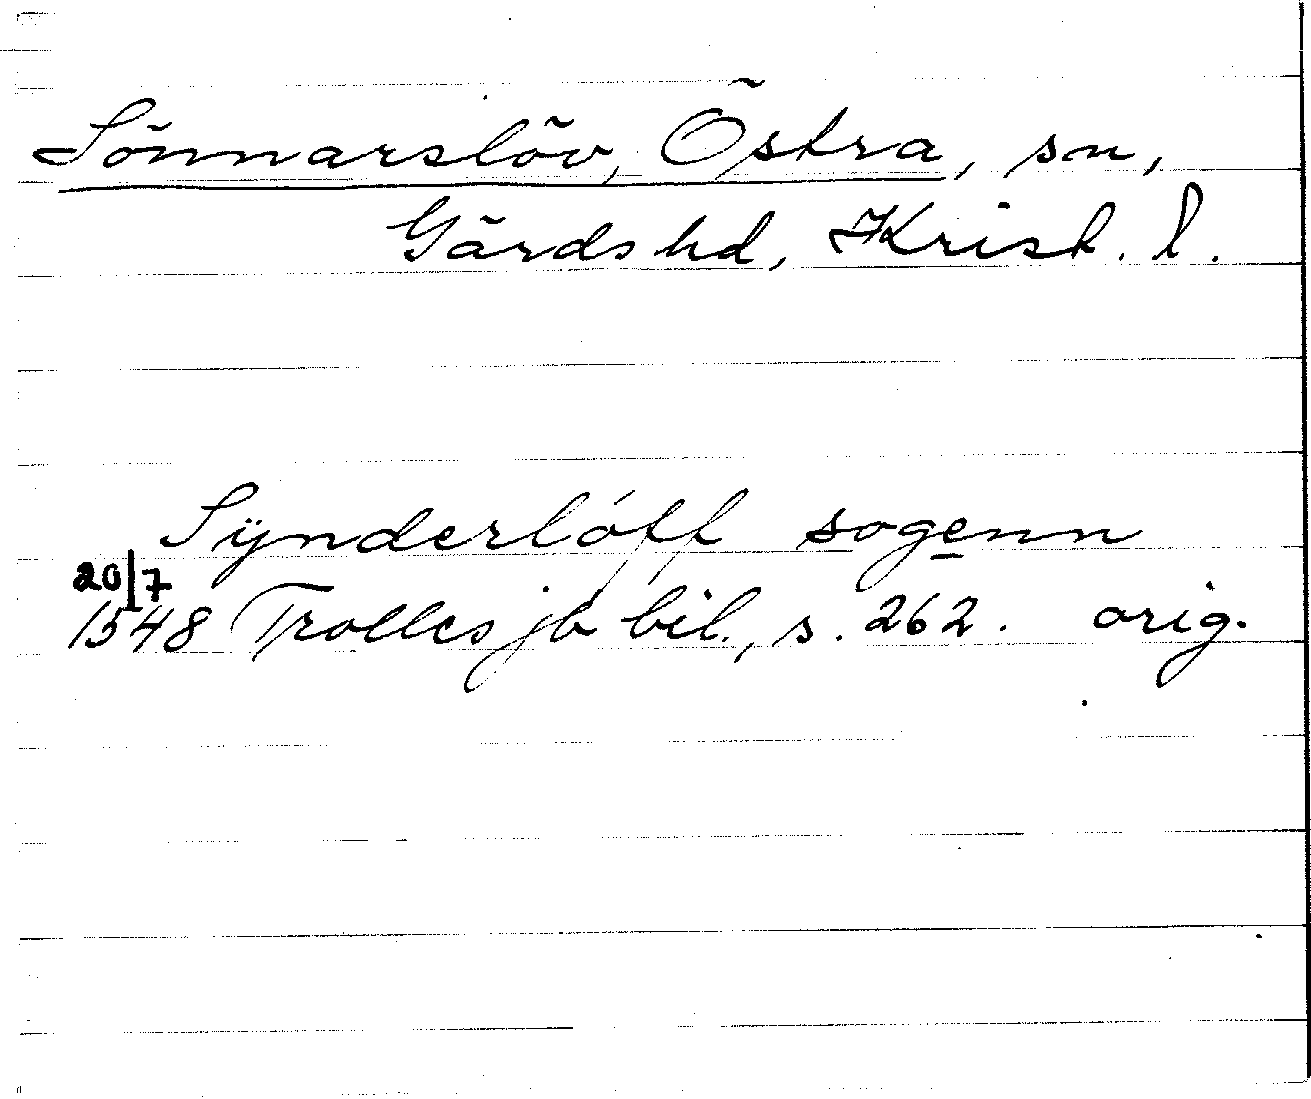 Sönnarslöv, Östra, sn,
Gärds hd, Krist. l.
Sÿnderlóff sogenn
20/7
1548 Trolles jb bil., s. 262. orig.